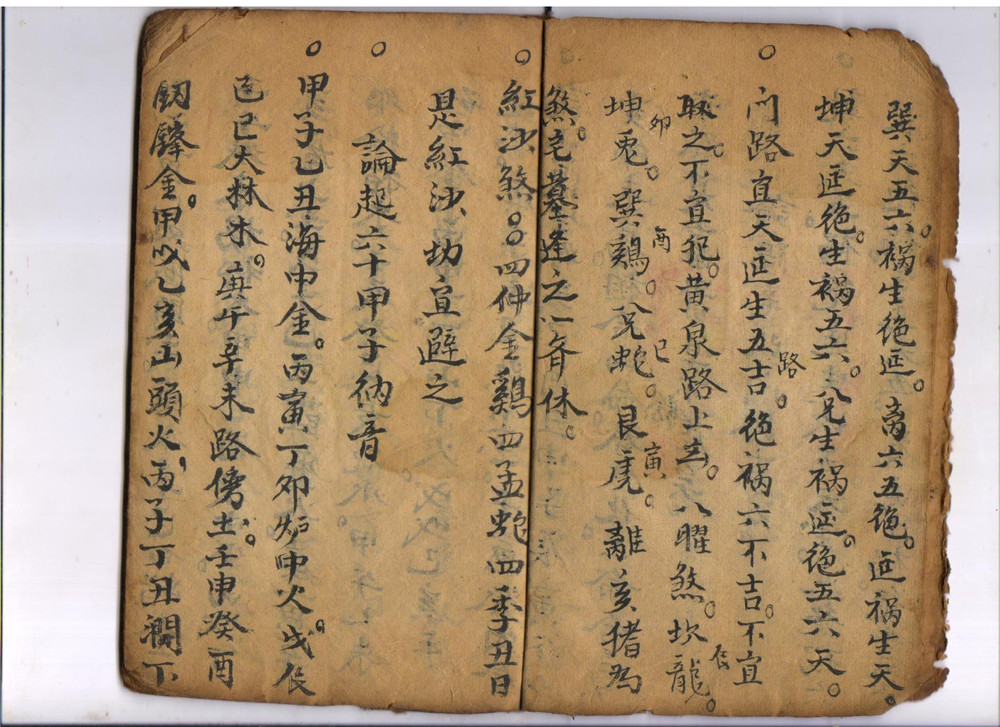 巽天五六。祸生绝延。离六五绝。延祸生天。
坤天延绝。生祸五六。兑生祸延。绝五六天。
门路宜天延生五吉。绝祸六不吉。不宜
路
之。不宜犯。黄泉路上去。八曜煞。坎龍。
辰
坤兎。巽鷄。兑蛇。艮虎。離亥猪為
卯 酉 巳 寅
煞。宅墓逢之一齐休。
紅沙煞。。四仲金鷄四孟蛇四季丑日
是紅沙切宜避之
論起六十甲子納音
甲子乙丑海中金。丙寅丁卯炉中火。戊辰
己巳大林木。庚午辛未路傍土。壬申癸酉
釰鋒金。甲戌乙亥山頭火。丙子丁丑澗下